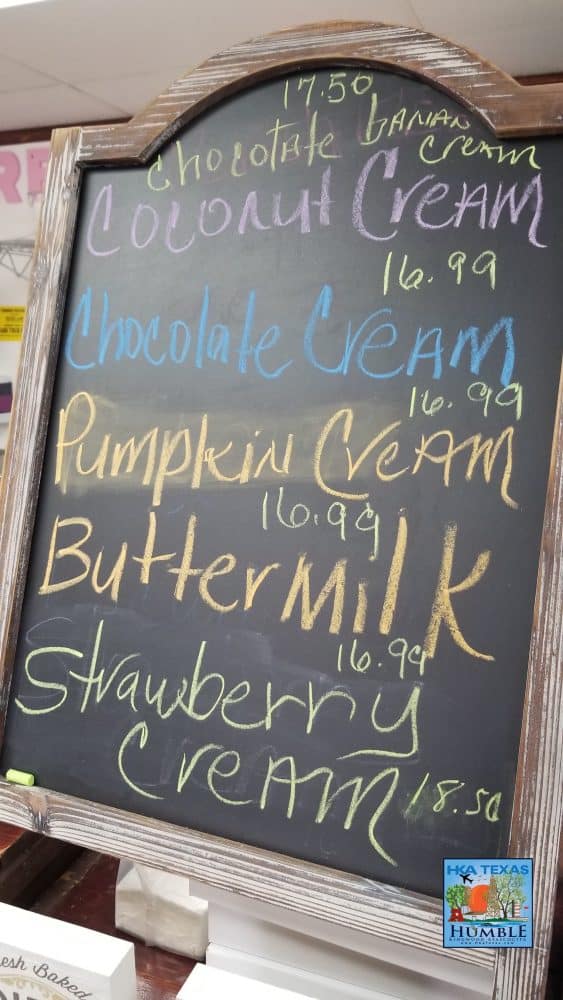 17.50
Chocolate Banan Cream
Coconut Cream
16.99
Chocolate Cream
16.99
Pumpkin Cream
16.99
Buttermilk
16.99
Strawberry
Cream 18.50
HKA TEXAS
HUMBLE
esh Baked